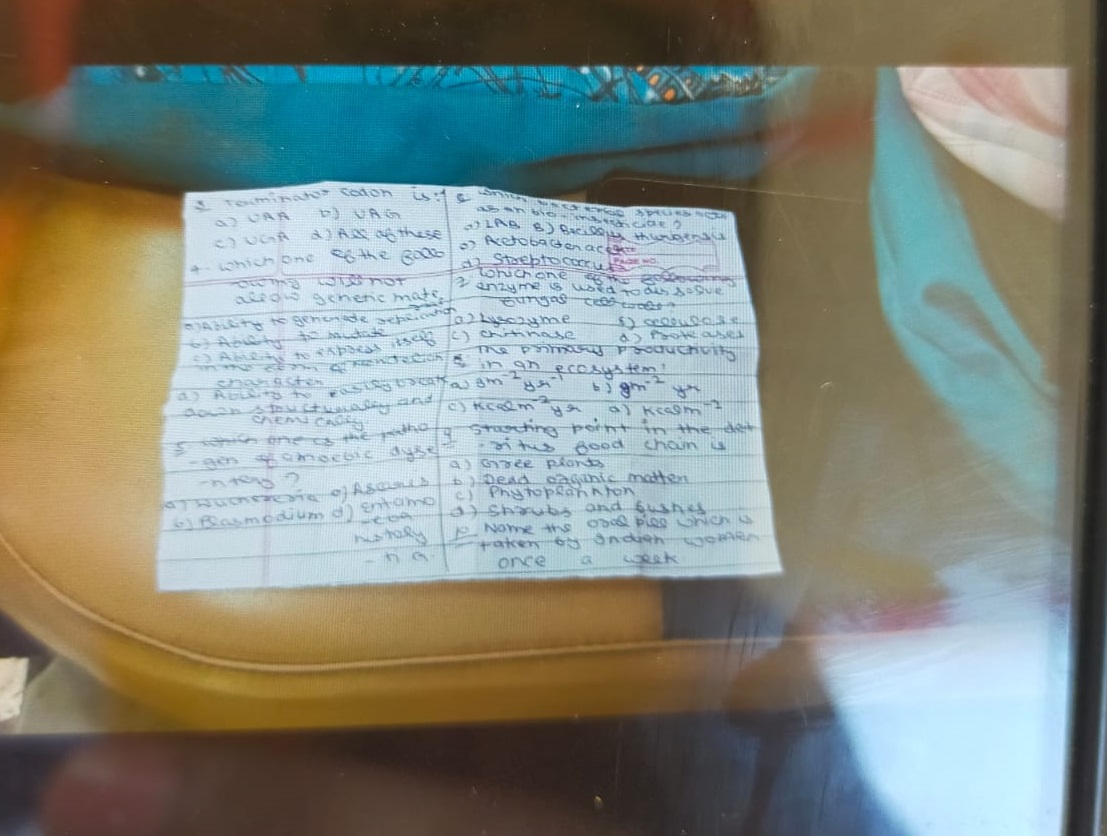 3 Terminator Codon is :-
a) UAA b) UAG
c) UGA d) All of these
4. which one of the follo
wing will not
allow genetic mate
a) Ability to generate
b) Ability to mutate
c) Ability to express itself
in the form of mendelian
character
d) Ability to easily break
down structurally and
chemically
5 which one is the patho
-gen of amoebic dyse
-ntery ?
a) Wuchereria c) Ascaris
b) Plasmodium d) Entamo
-eba
histoly
6 which bacterial species
as an bio-insecticide ?
a) LAB B) Bacillus thuringensis
c) Acetobacter aceti
d) Streptococcus
PAGE NO.
7 which one of the following
enzyme is used to dissolve
fungal cell walls?
a) Lysozyme b) cellulase
c) chitinase d) Proteases
8 The primary Productivity
in an ecosystem!
a) gm-2 yr-1 b) gm-2 yr
c) Kcalm-2 yr d) Kcalm-2
9 Starting point in the det
-ritus food chain is
a) Gree plants
b) Dead organic matter
c) Phytoplankton
d) Shrubs and bushes
10 Name the oral pill which is
taken by Indian women
once a week